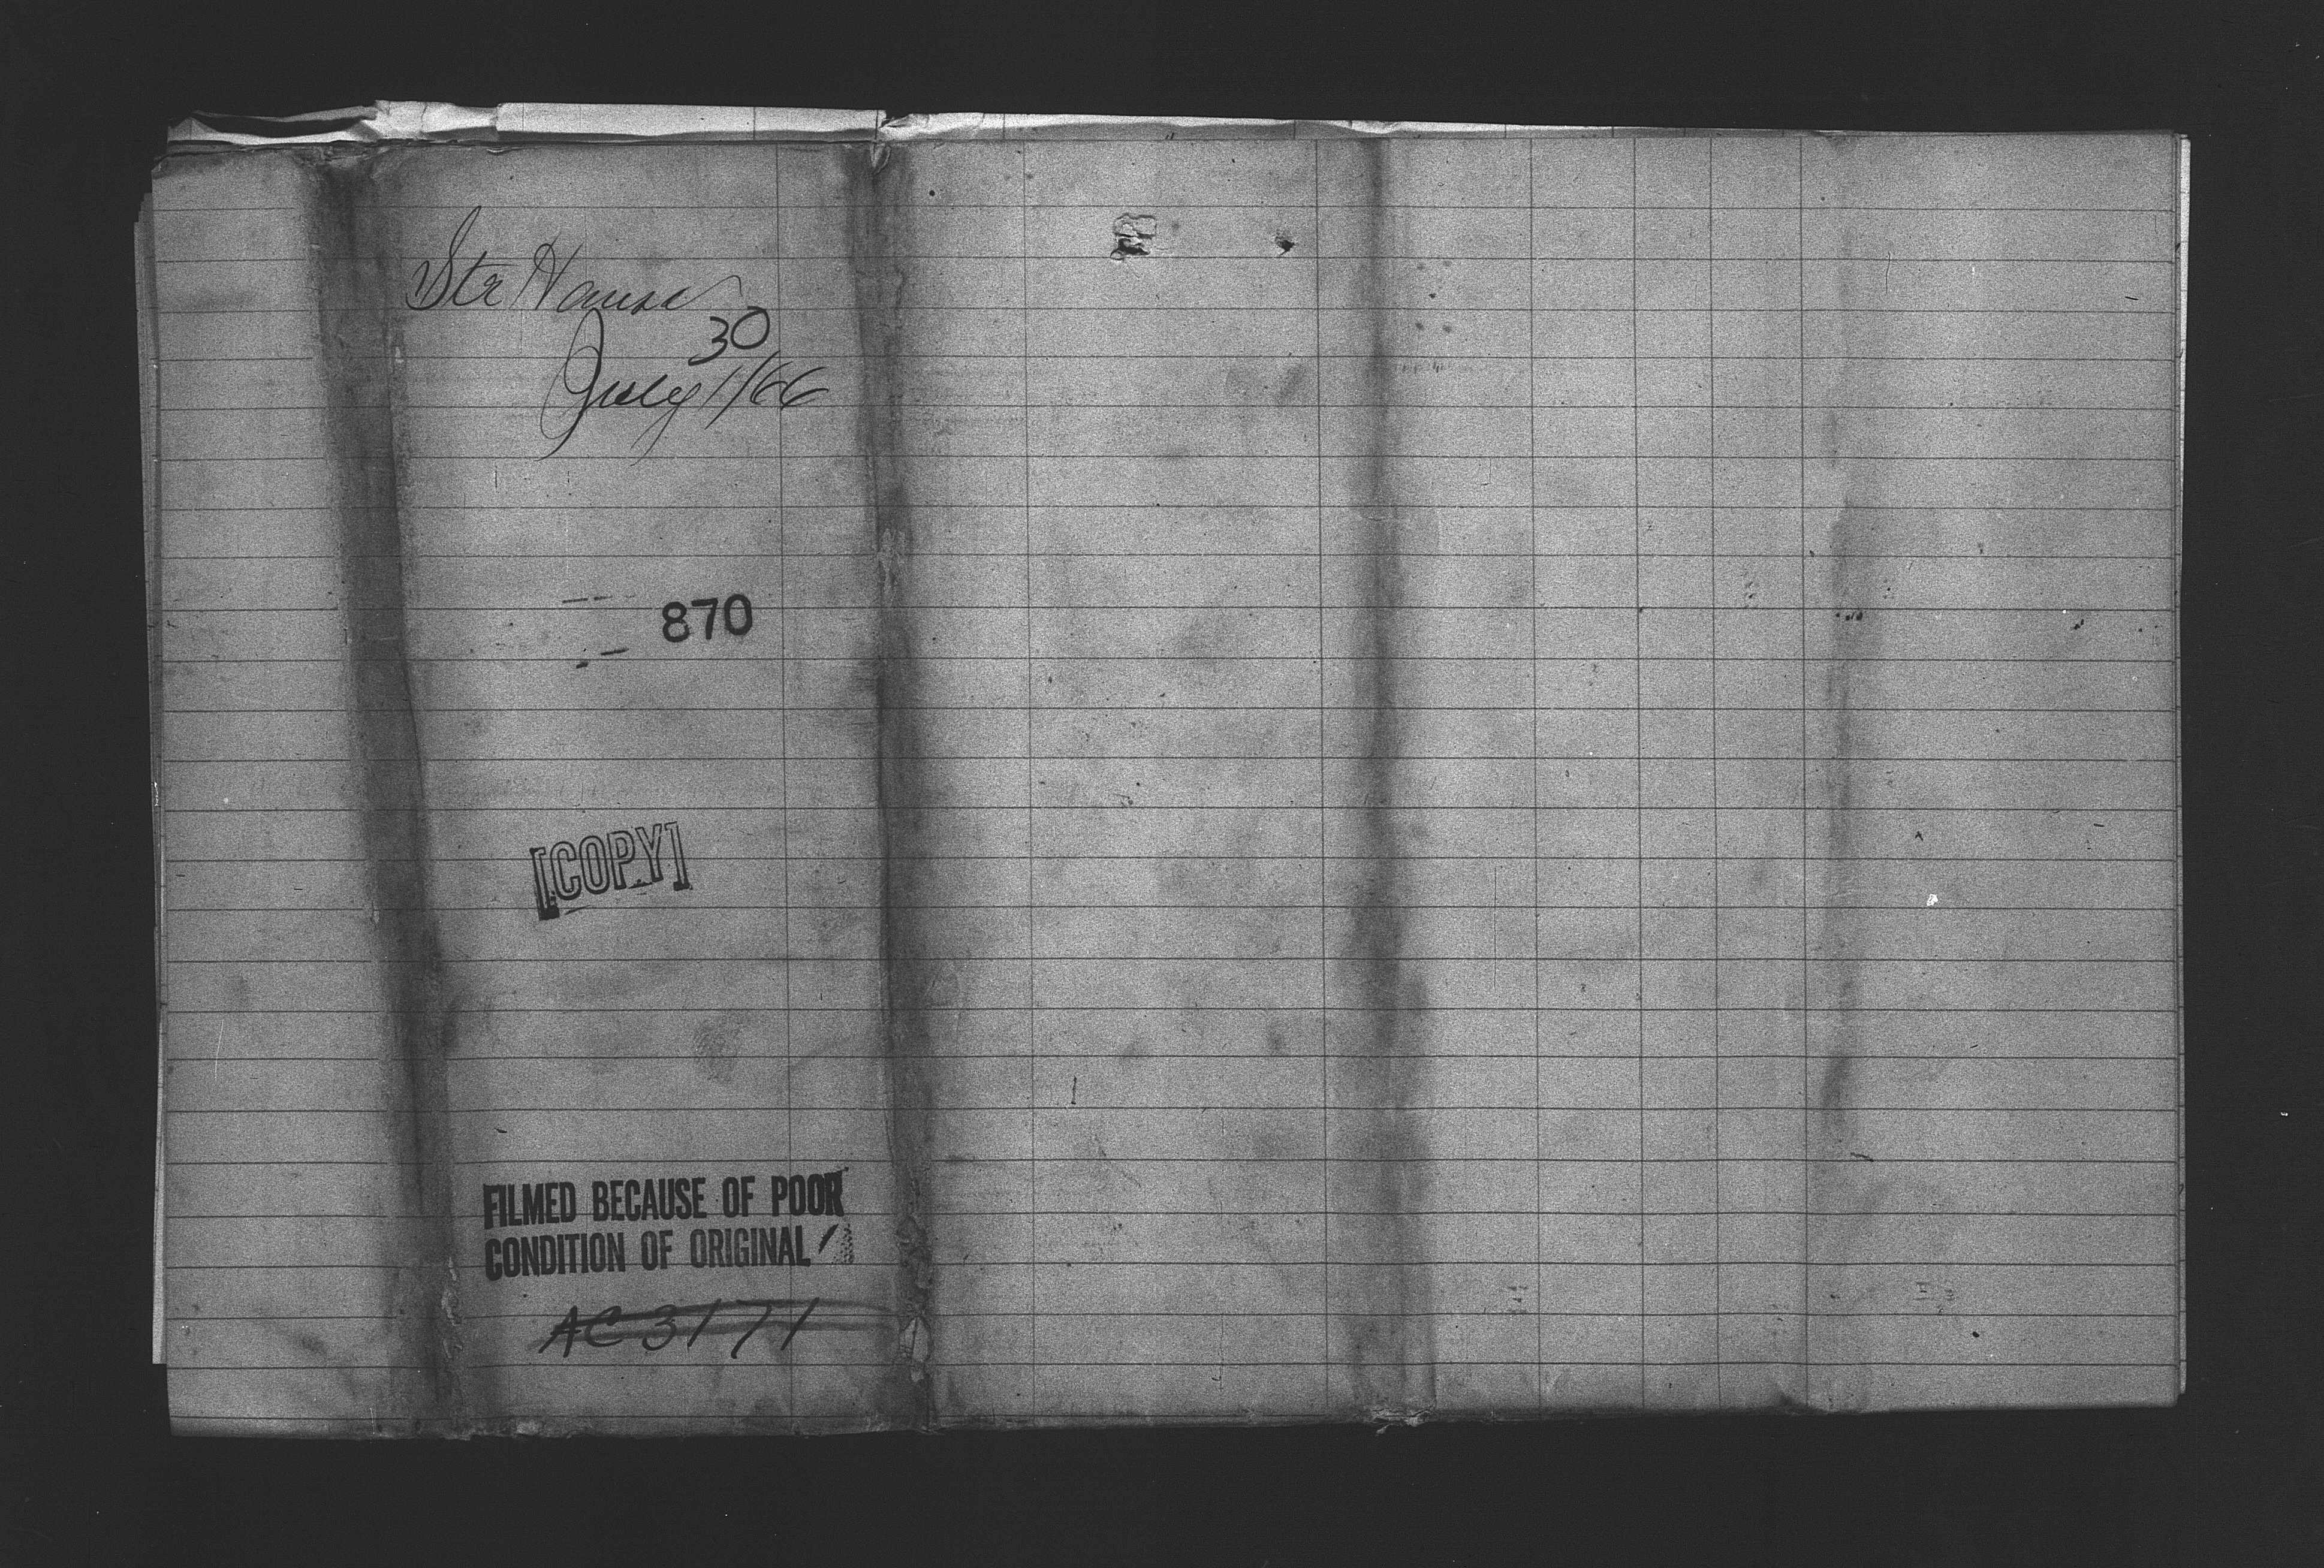 Str Hansa
30
July 1/66
870
[COPY]
FILMED BECAUSE OF POOR
CONDITION OF ORIGINAL
AC 3171